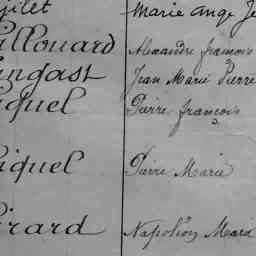 gilet Marie Ange Je
illouard Alexandre françois
ngast Jean Marie Pierre
iquel Pierre françois
iquel Pierre Marie
irard Napoléon Marie